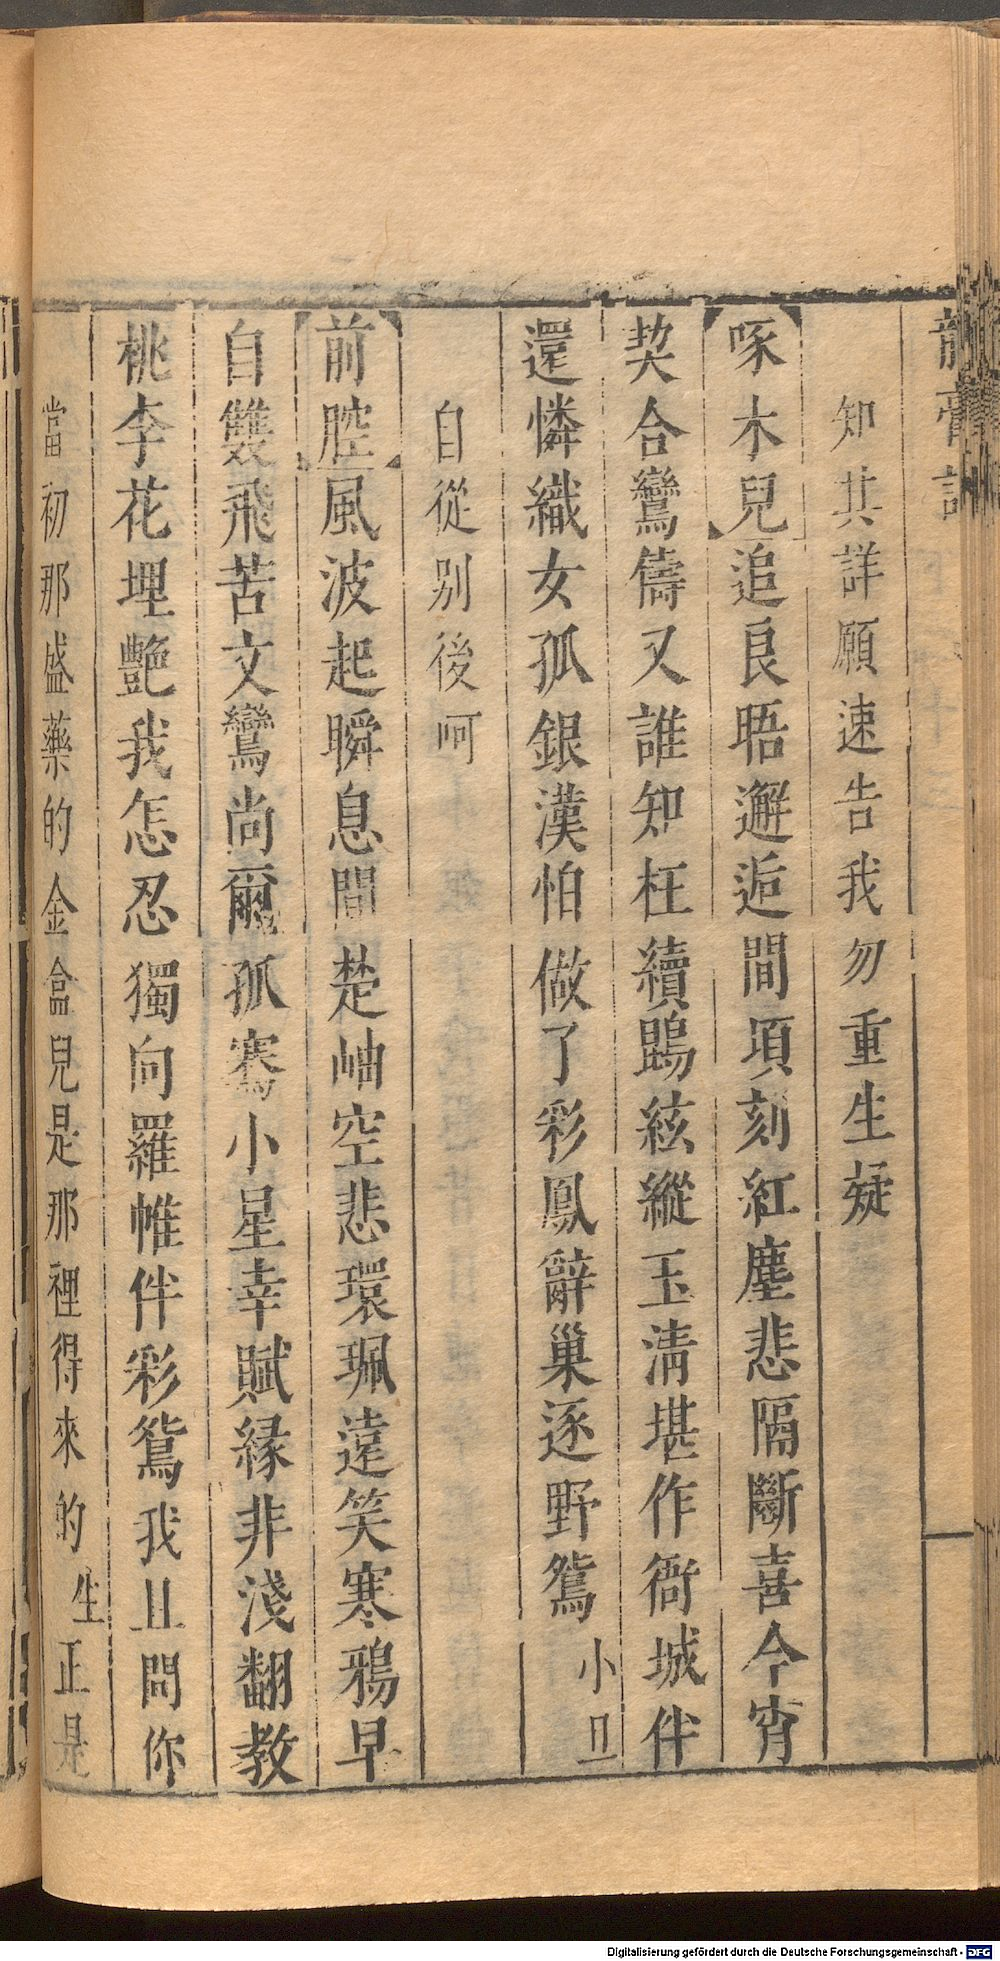 龍膏記
知共詳願速告我勿重生疑
啄木兒追良晤邂逅間項刻紅塵悲隔斷喜今宵
契合鸞儔又誰知枉續鵾絃縱玉淸堪作衙城伴
還憐織女孤銀漢怕做了彩鳳辭巢逐野鴛 小旦
自從别後呵
前腔風波起瞬息間楚岫空悲環珮遠笑寒鴉早
自雙飛苦文鸞尚爾孤騫小星幸賦緣非淺翻教
桃李花埋艷我怎忍獨向羅帷伴彩鴛我且問你
當初那盛藥的金盒兒是那裡得來的 生 正是
Digitalisierung gefördert durch die Deutsche Forschungsgemeinschaft - DFG